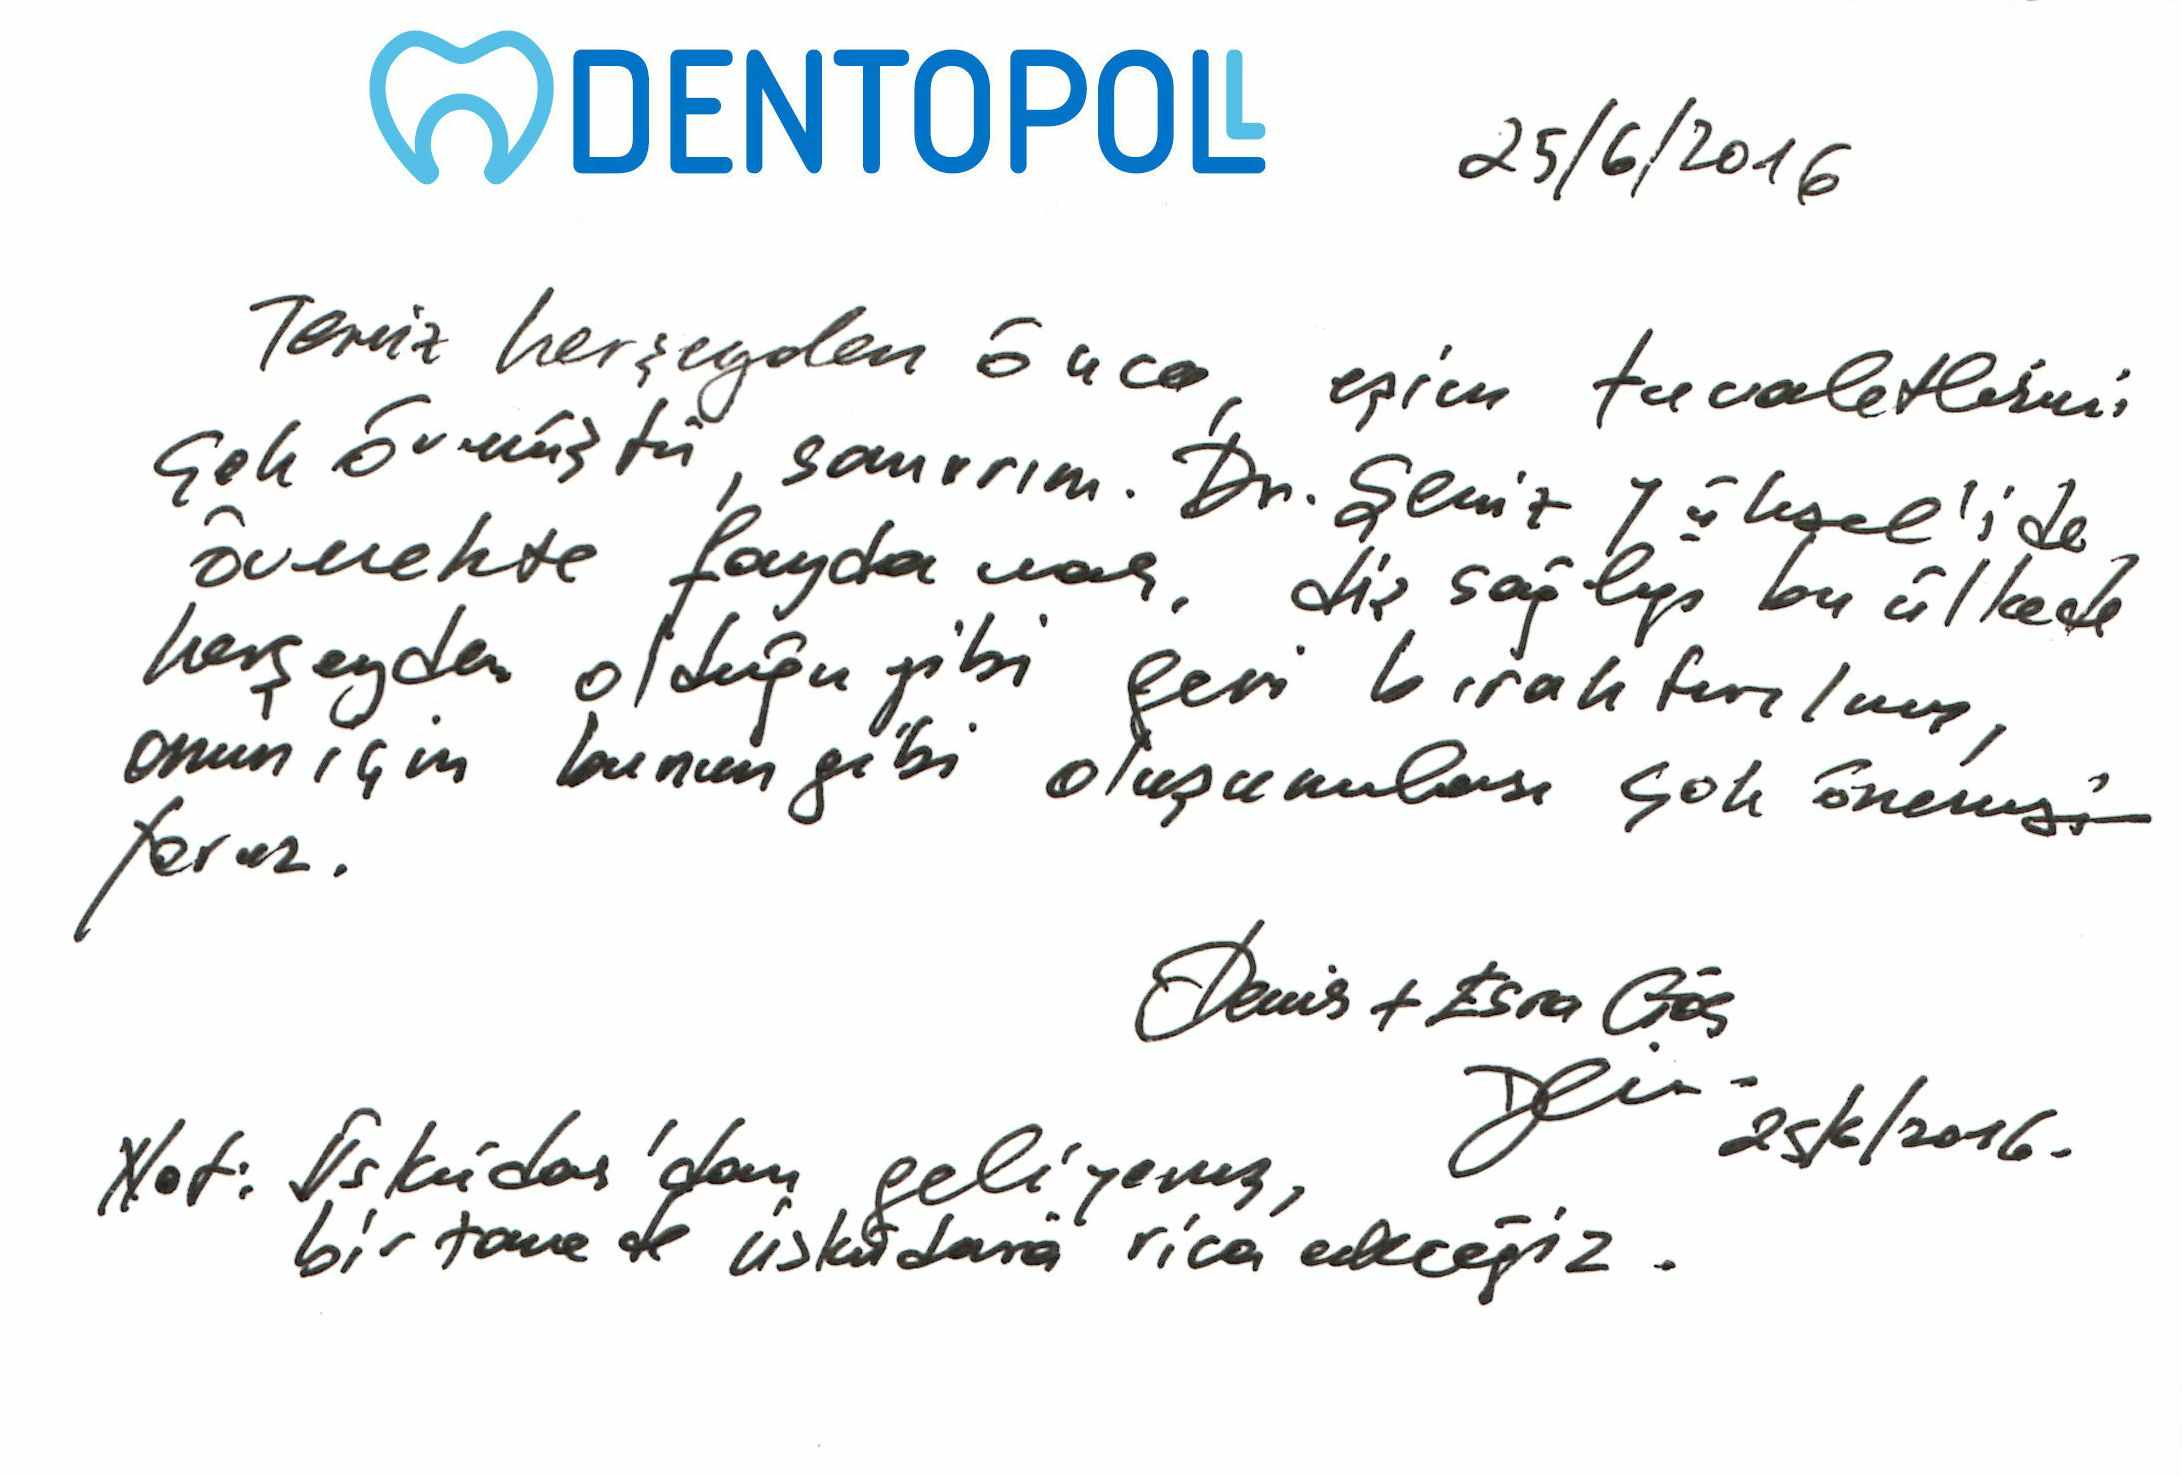 DENTOPOLL
25/6/2016
Temiz herşeyden önce, eşim tuvaletlerini
çok övmüştü, sanırım. Dr. Şeniz Yüksel'i de
övmekte fayda var, diş sağlığı bu ülkede
herşeyden olduğu gibi geri bıraktırılmış,
onun için bunun gibi oluşumları çok önemsi-
yoruz.
Denis + Esra Göş
25/6/2016.
Not: Üsküdar'dan geliyoruz,
bir tane de üsküdara rica edeceğiz.